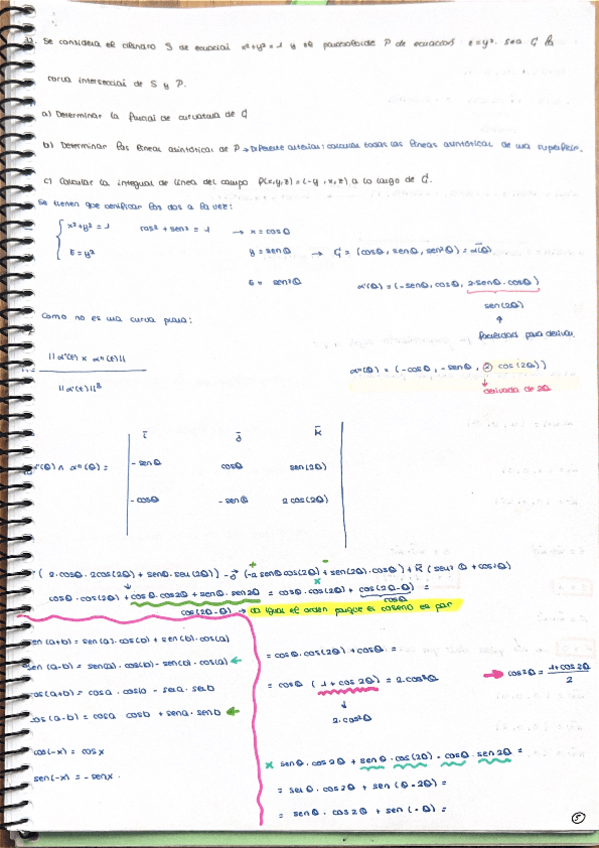 Se considera el cilindro S de ecuación x²+y²=1 y el paraboloide P de ecuación z=y². Sea C la
curva intersección de S y P.
a) Determinar la función de curvatura de C
b) Determinar las líneas asintóticas de P → Diferente anterior: calcular todas las líneas asintóticas de una superficie.
c) Calcular la integral de línea del campo f(x,y,z)=(-y,x,z) a lo largo de C.
Se tienen que verificar los dos a la vez:
x²+y²=1 cos²+sen²=1 → x=cosθ
z=y² y=senθ → C=(cosθ, senθ, sen²θ)=α(θ)
z= sen²θ α'(θ)=(-senθ, cosθ, 2·senθ·cosθ)
sen(2θ)
↑
para derivar.
Como no es una curva plana:
||α'(t) x α''(t)||
||α'(t)||³
α''(θ) = (-cosθ, -senθ, 2 cos(2θ))
derivada de 2θ
i j k
α'(θ) ∧ α''(θ) = -senθ cosθ sen(2θ)
-cosθ -senθ 2cos(2θ)
(2·cosθ·2cos(2θ) + senθ·sen(2θ)) - j (-2 senθ cos(2θ) + sen(2θ)·cosθ) + k (sen²θ + cos²θ)
cosθ·cos(2θ) + cosθ·cos2θ + senθ·sen2θ = cosθ·cos(2θ) + cos(2θ-θ) =
cosθ
cos(2θ-θ) → da igual el orden porque el coseno es par
sen(a+b) = sen(a)·cos(b) + sen(b)·cos(a)
sen(a-b) = sen(a)·cos(b) - sen(b)·cos(a) ←
cos(a+b) = cosa·cosb - sena·senb
cos(a-b) = cosa cosb + sena·senb ←
cos(-x) = cosx
sen(-x) = -senx.
= cosθ·cos(2θ) + cosθ =
= cosθ (1+cos2θ) = 2·cos³θ → cos²θ = 1+cos2θ / 2
↓
2·cos²θ
x senθ·cos2θ + senθ·cos(2θ) - cosθ·sen2θ =
= senθ·cos2θ + sen(θ-2θ) =
= senθ·cos2θ + sen(-θ) =
5